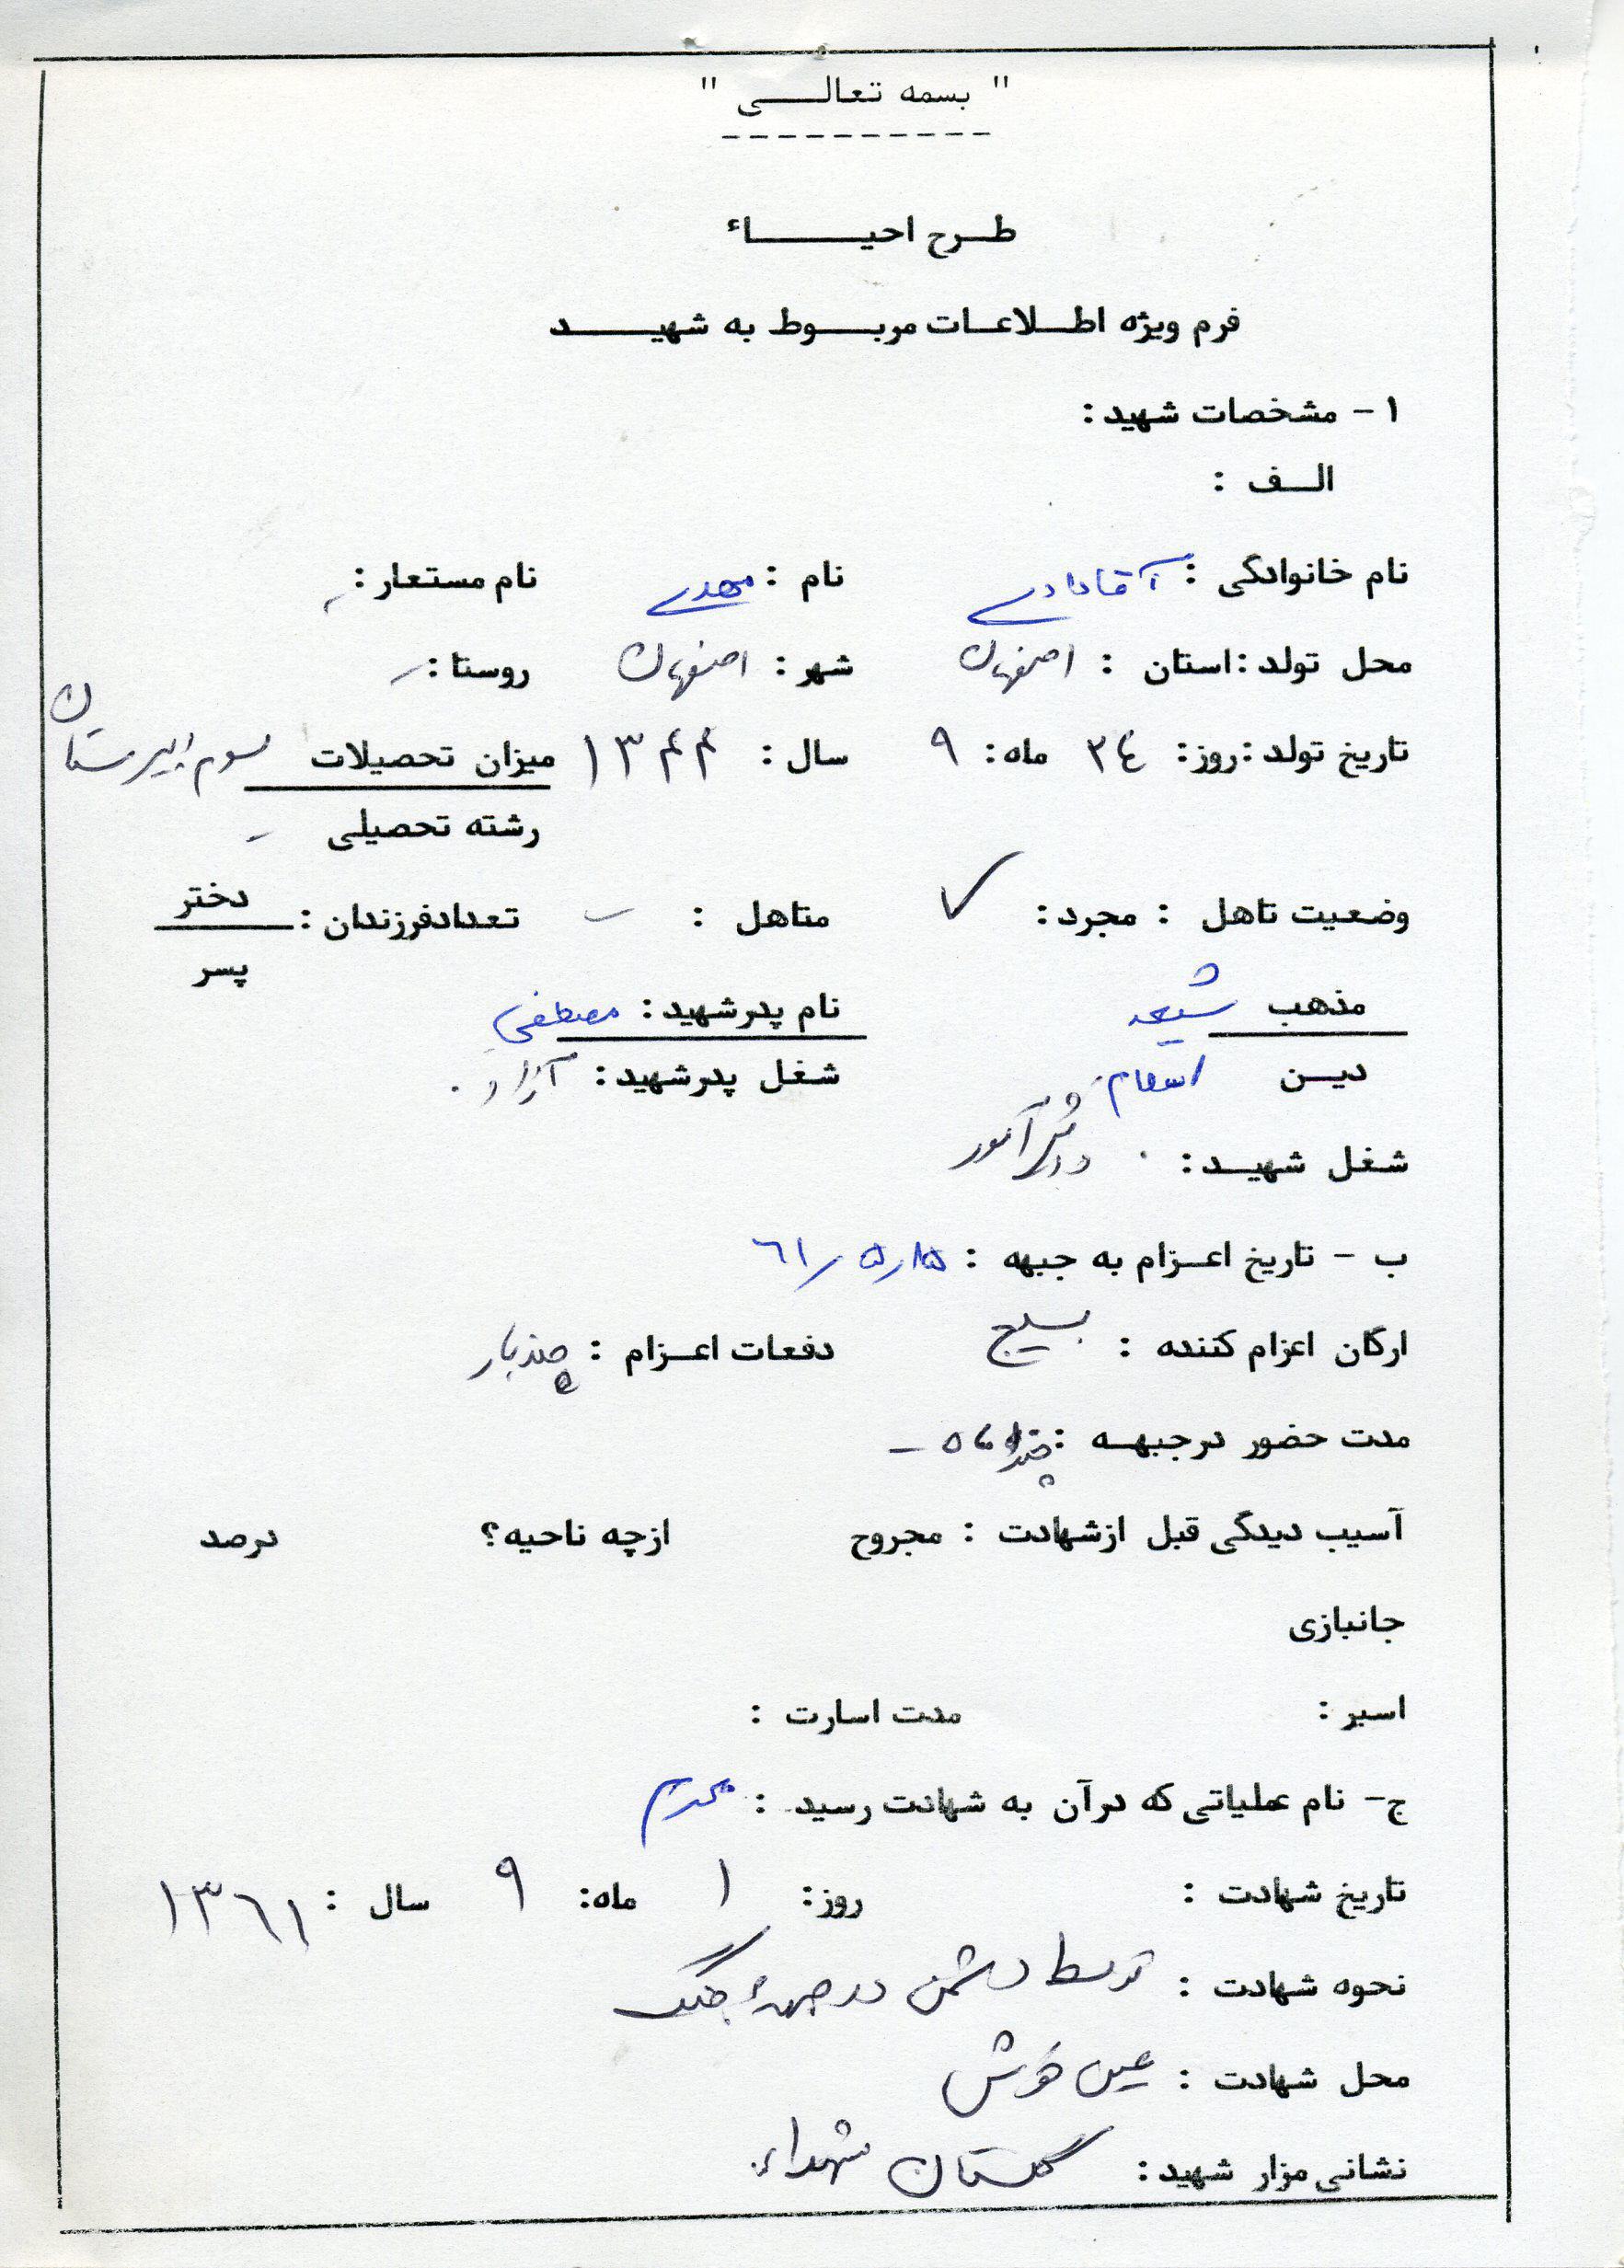 " بسمه تعالی "
طرح احیاء
فرم ویژه اطلاعات مربوط به شهید
۱ - مشخصات شهید :
الف :
نام خانوادگی : آقادادی نام : مهدی نام مستعار : -
محل تولد : استان : اصفهان شهر : اصفهان روستا : -
تاریخ تولد : روز : ۲٤ ماه : ۹ سال : ۱۳۴۴ میزان تحصیلات سوم دبیرستان
رشته تحصیلی -
وضعیت تاهل : مجرد : ✓ متاهل : - تعداد فرزندان : دختر
پسر
مذهب شیعه نام پدر شهید : مصطفی
دین اسلام شغل پدر شهید : آزاد
شغل شهید : دانش آموز
ب - تاریخ اعزام به جبهه : ۶۱/۵/۱۵
ارگان اعزام کننده : بسیج دفعات اعزام : چند بار
مدت حضور در جبهه : چند ماه -
آسیب دیدگی قبل از شهادت : مجروح از چه ناحیه؟ درصد
جانبازی
اسیر : مدت اسارت :
ج - نام عملیاتی که در آن به شهادت رسید : محرم
تاریخ شهادت : روز : ۱ ماه : ۹ سال : ۱۳۶۱
نحوه شهادت : توسط دشمن در جبهه جنگ
محل شهادت : عین خوش
نشانی مزار شهید : گلستان شهداء